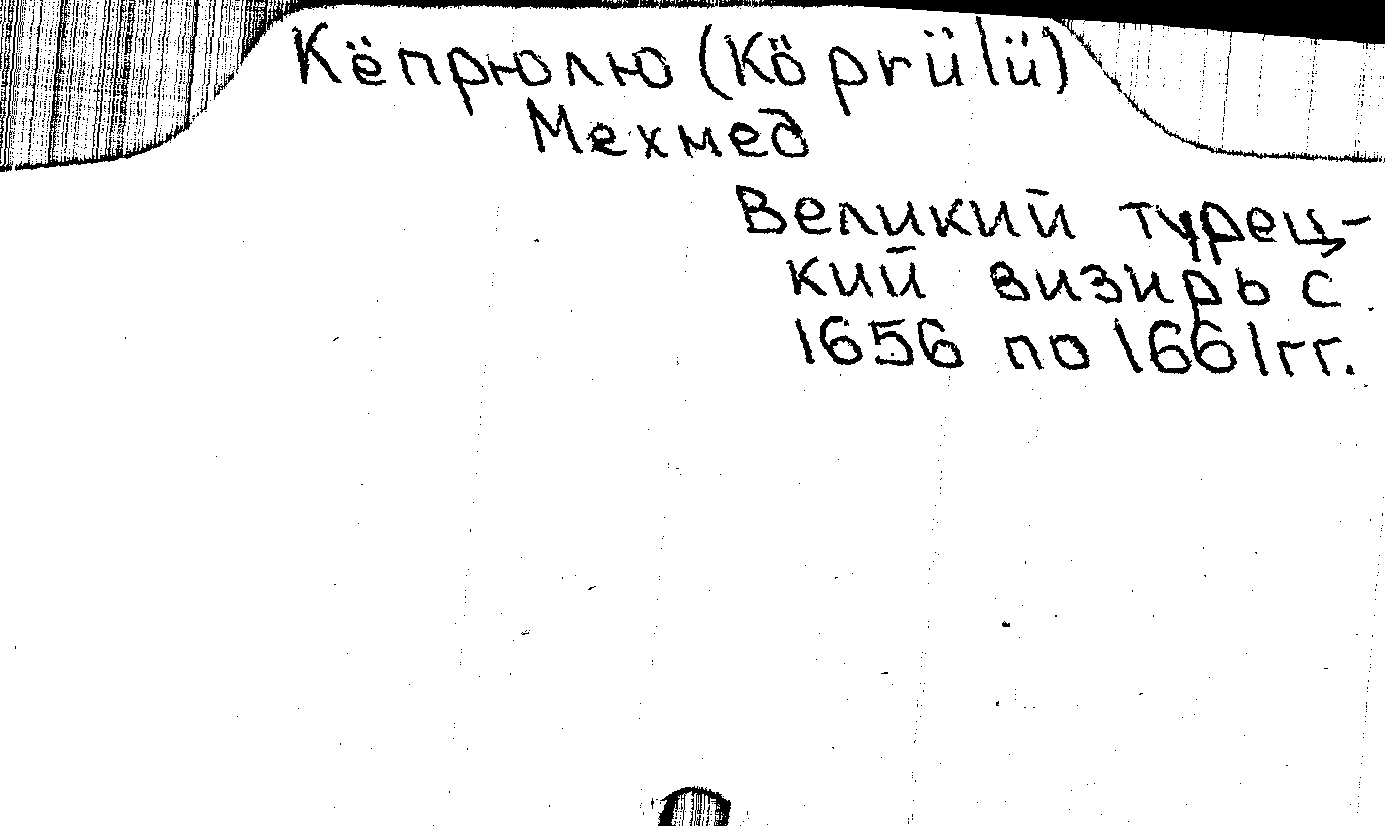 Кёпрюлю (Köprülü)
Мехмед
Великий турец-
кий визирь с
1656 по 1661гг.